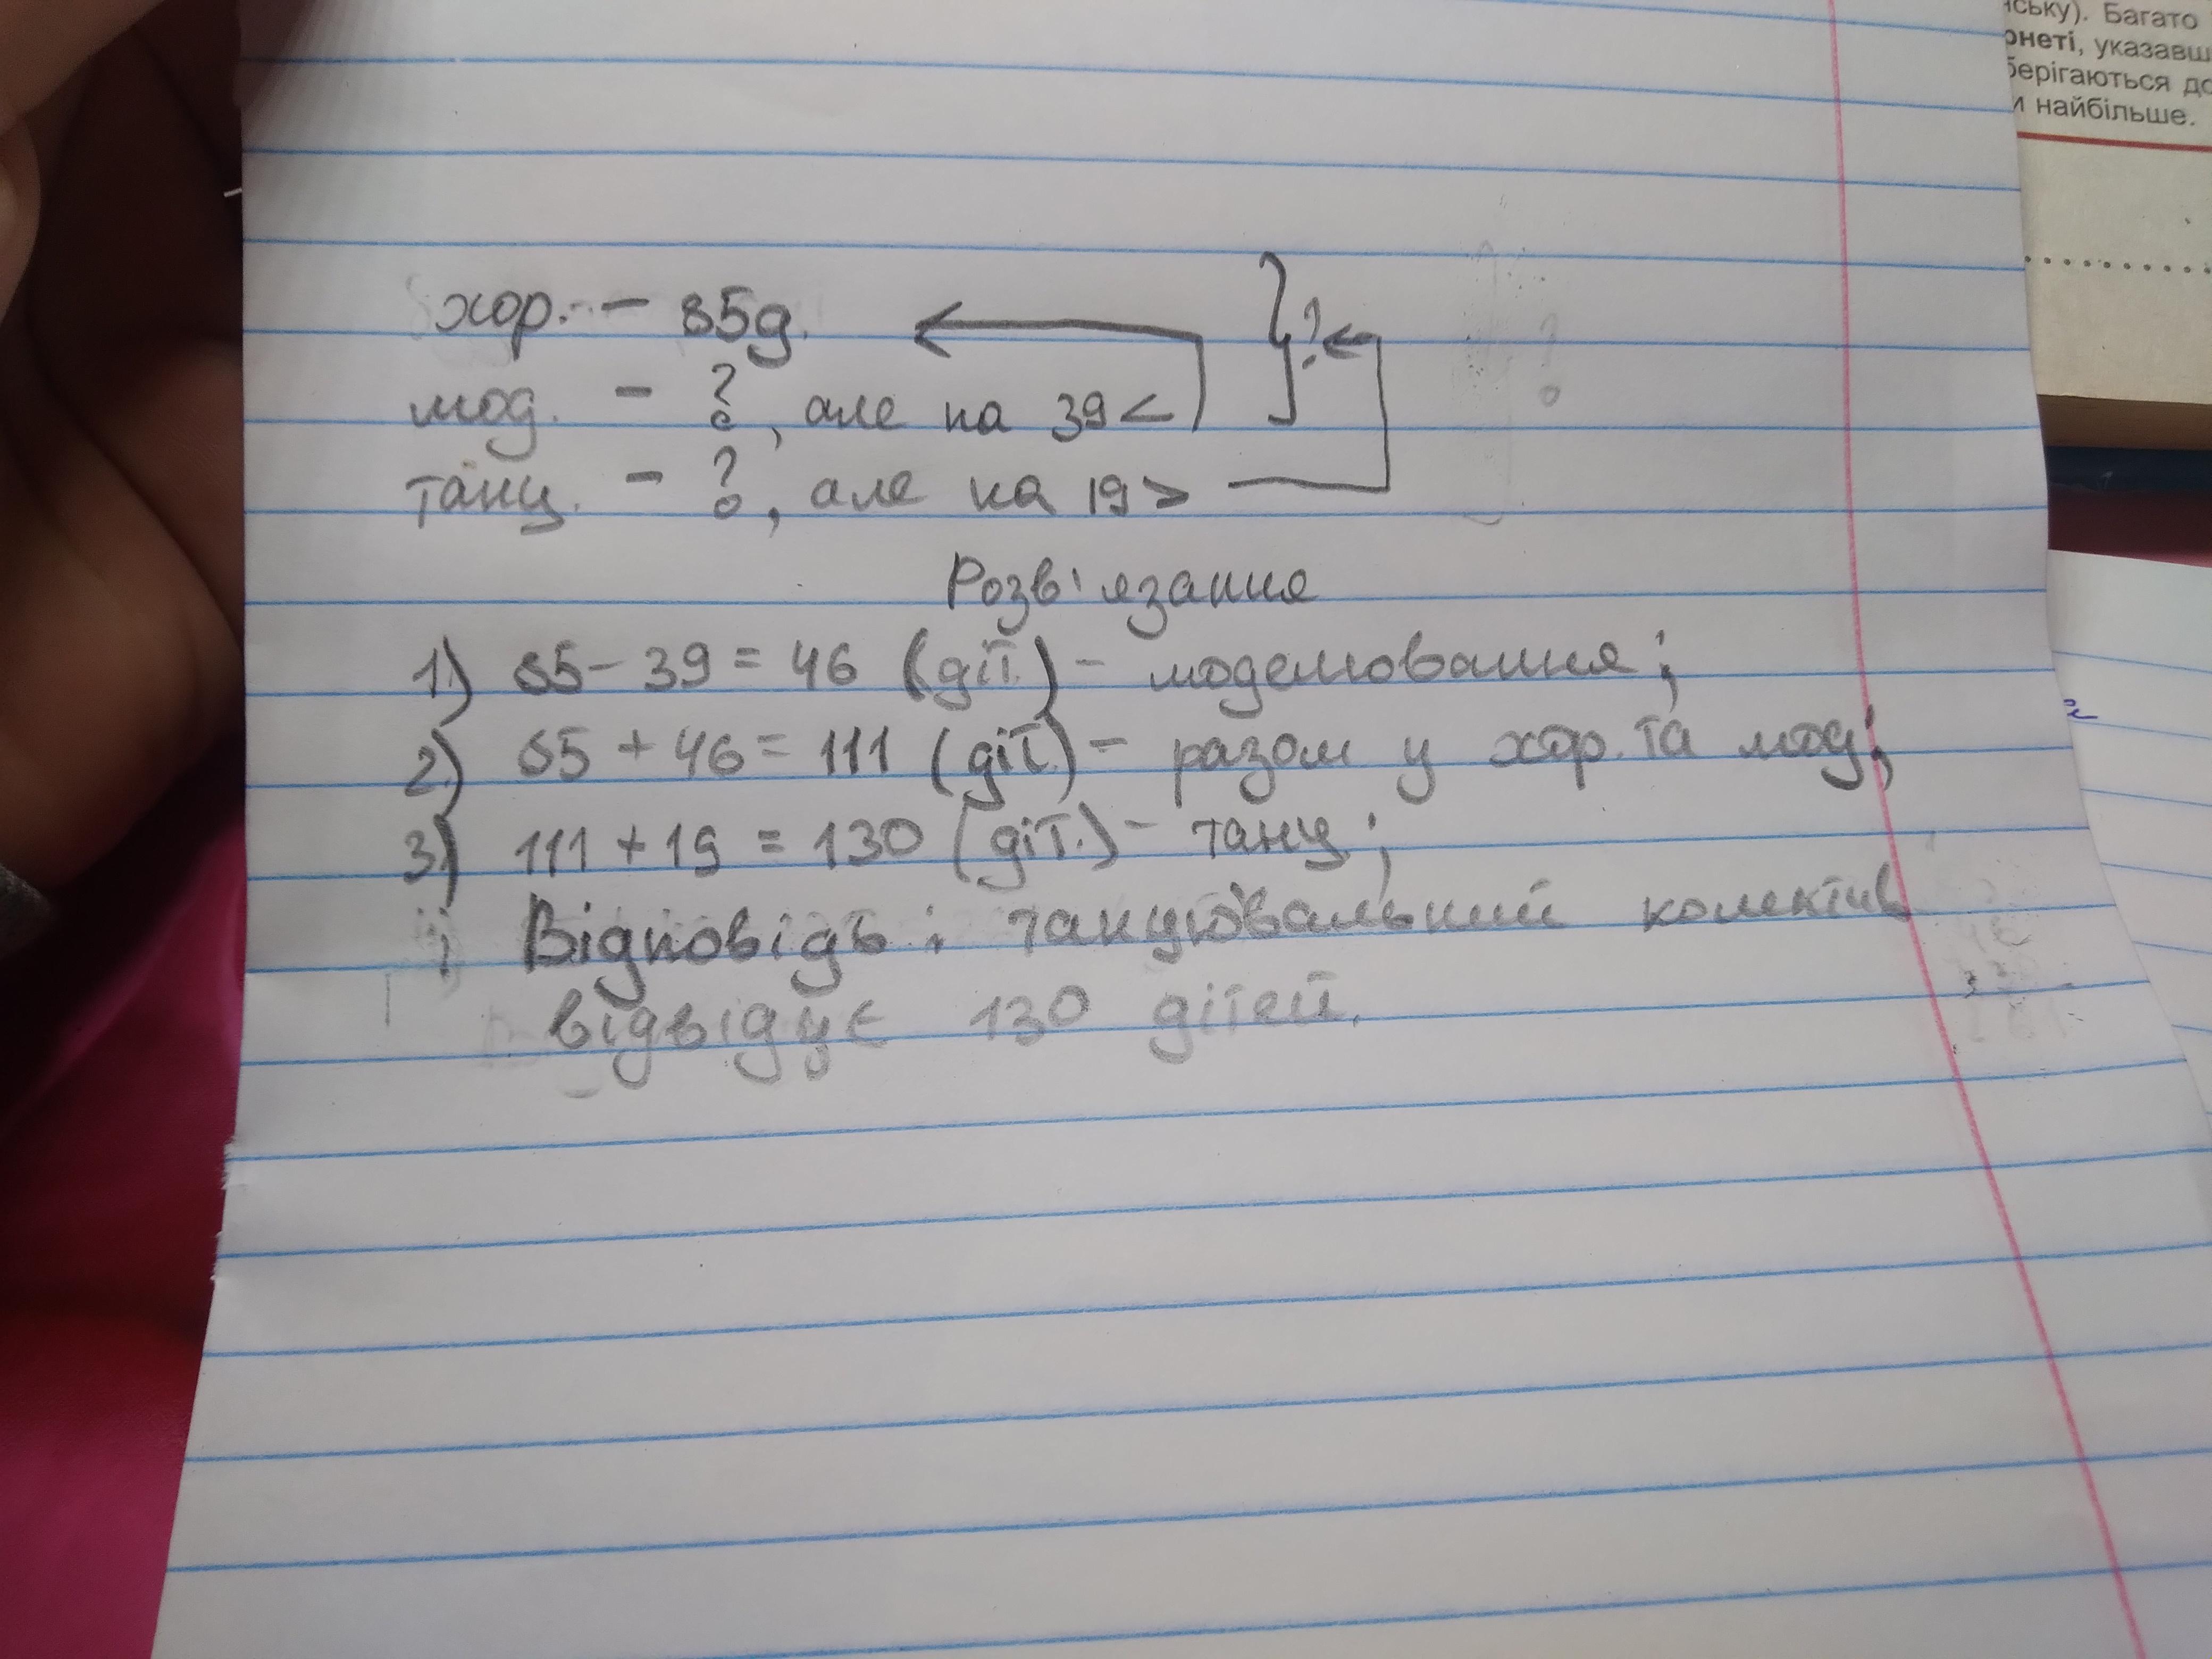 ську). Багато
рнеті, указавш
берігаються до
и найбільше.
хор. - 85д.
мод. - ?, але на 39 < }?
танц. - ?, але на 19 >
Розв'язання
1) 85 - 39 = 46 (діт.) - моделювання;
2) 65 + 46 = 111 (діт.) - разом у хор. та мод;
3) 111 + 19 = 130 (діт.) - танц;
Відповідь: танцювальний колектив
відвідує 130 дітей.